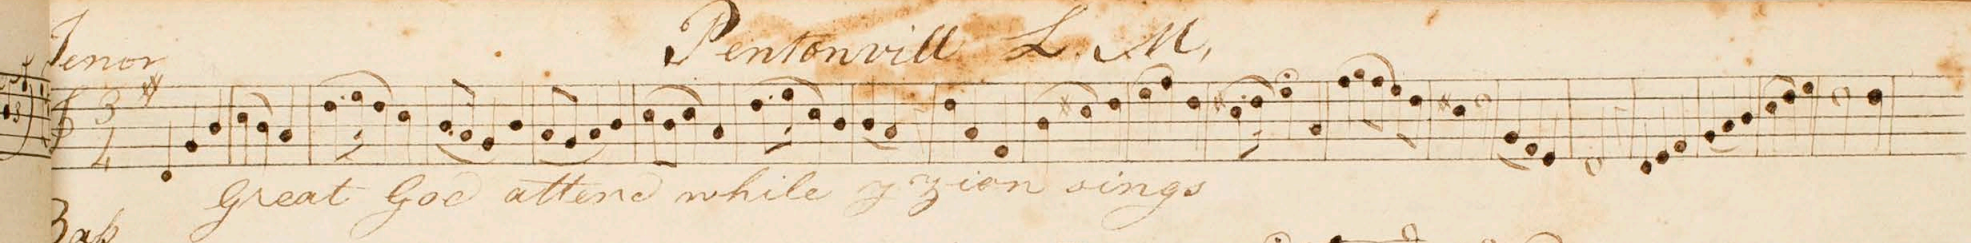 Pentonvill L. M,
Tenor
3
4
Great God attend while z zion sings
Bass